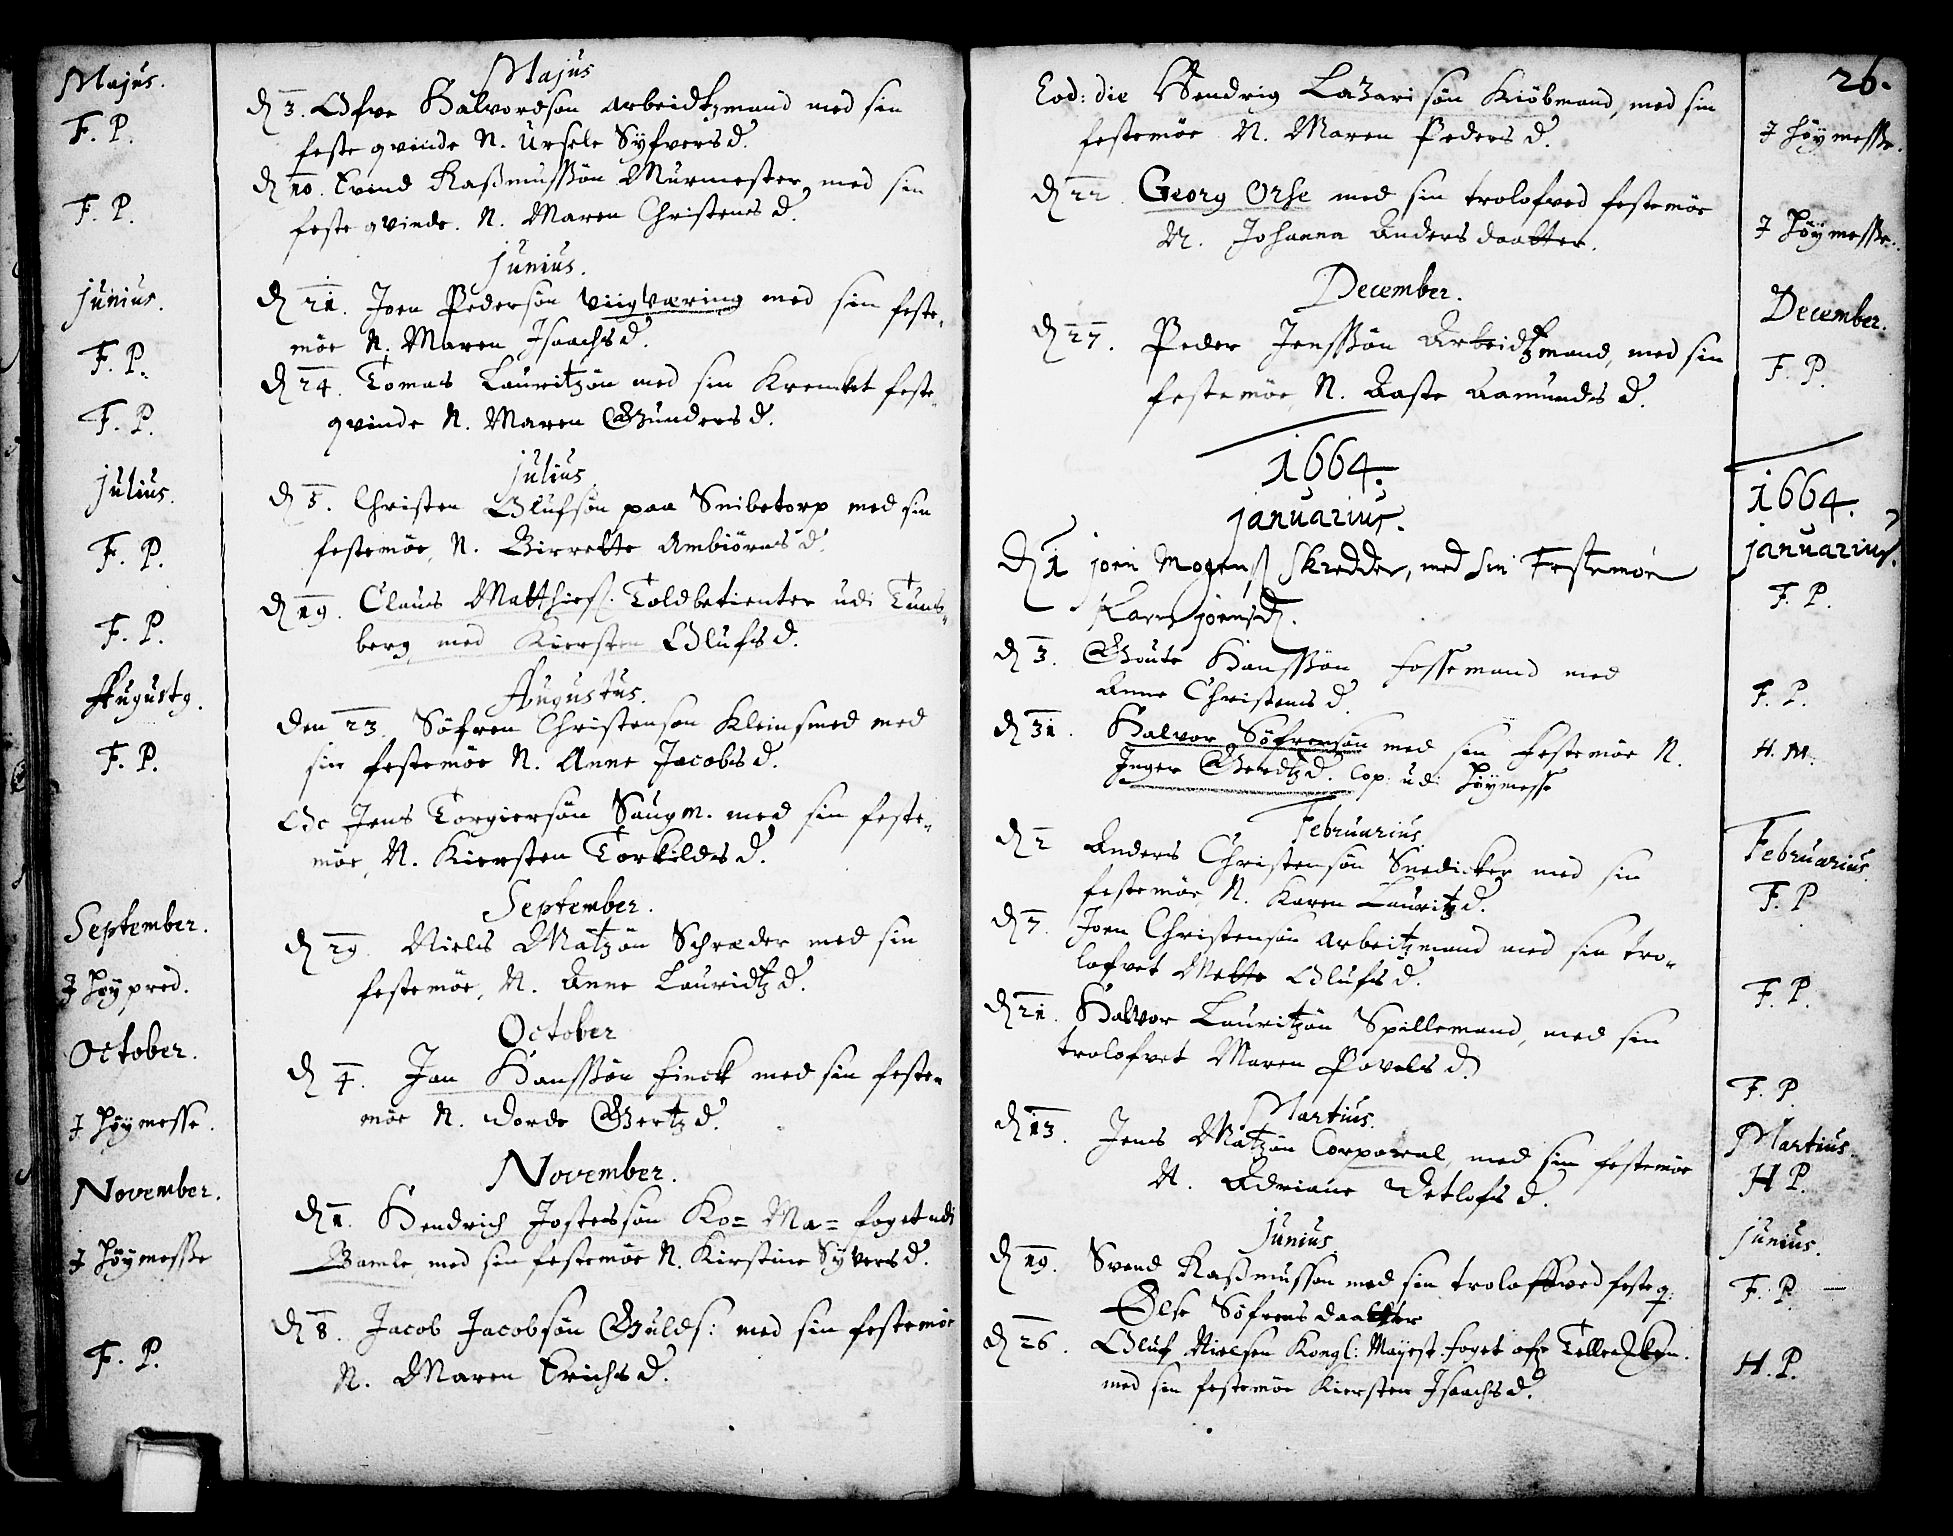 Majus.
F. P.
F. P.
Junius.
F. P.
F. P.
Julius.
F. P.
F. P.
Augustg.
F. P.
September.
J Høypred.
October.
J Høymesse.
November.
J Høymesse
F. P.
Majus
d 3. Olfve Halvordsøn Arbeidtzmand med sin
feste qvinde N. Ursele Syfversd.
d 10. Evind Raßmussøn Murmester, med sin
feste qvinde. N. Maren Christensd.
Junius.
d 21. Joen Pedersøn med sin feste-
møe N. Maren Isaachsd.
d 24. Tomas Lauritzøn med sin Krencket feste-
qvinde N. Maren Gundersd.
Julius
d 5. Christen Olufsøn paa Snibetorp med sin
festemøe, N. Birrette Ambiørnsd.
d 19. Claus Matthiess. Toldbetienter udi Tuns-
berg med Kiersten Olufsd.
Augustus.
den 23. Søfren Christensøn Kleinsmed med
sin festemøe N. Anne Jacobsd.
Oc Jens Torgiersøn Saugm. med sin feste-
møe, N. Kiersten Torkildsd.
September.
d 29. Niels Matzøn Schræder med sin
festemøe, N. Anne Lauridtzd.
October
d 4. Jan Hanssøn Finck med sin feste-
møe N. Dorde Geertzd.
November.
d 1. Hendrich Jostessøn Ko= Ma= foget udi
Bamle, med sin festemøe N. Kirstine Syversd.
d 8. Jacob Jacobsøn Gulds: med sin festemøe
N. Maren Erichsd.
26.
Eod: die Hendrig Lazarisøn Kiøbmand, med sin
festemøe N. Maren Pedersd.
d 22. Georg Orse med sin trolofved festemøe
N. Johanna Andersdaatter.
December.
d 27. Peder Jenssøn Arbeidtzmand, med sin
festemøe, N. Aaste Aamundsd.
1664.
Januarius.
d 1 Joen Mogenss Skredder, med sin Festemøe
Karen Joensd.
d 3. Goute Hanssøn Fossemand med
Anne Christensd.
d 31. Halvor Søfrensøn med sin Festemøe N.
Inger Gerdtzd. Cop: udi Høymesse
Februarius
d 2 Anders Christensøn Snedicker med sin
festemøe, N. Karen Lauritzd.
d 7. Joen Christensøn Arbeitzmand med sin tro-
lofvet Mette Olufsd.
d 21. Halvor Lauritzøn Spillemand, med sin
trolofvet Maren Povelsd.
Martius.
d 13. Jens Matzøn Corporal, med sin festemøe
N. Adriane Detlofsd.
Junius
d 19. Svend Raßmussøn med sin troloffved festeq:
Else Søfrensdaatter
d 26. Oluf Nielsen Kongl: Mayest. foget ofr
med sin festemøe Kiersten Isaachsd.
J Høymesse.
J Høymesse.
December.
F. P.
1664.
Januarius.
F. P.
F. P.
H. M.
Februarius
F. P
F. P.
F. P.
Martius.
H P.
Junius.
F. P.
H. P.